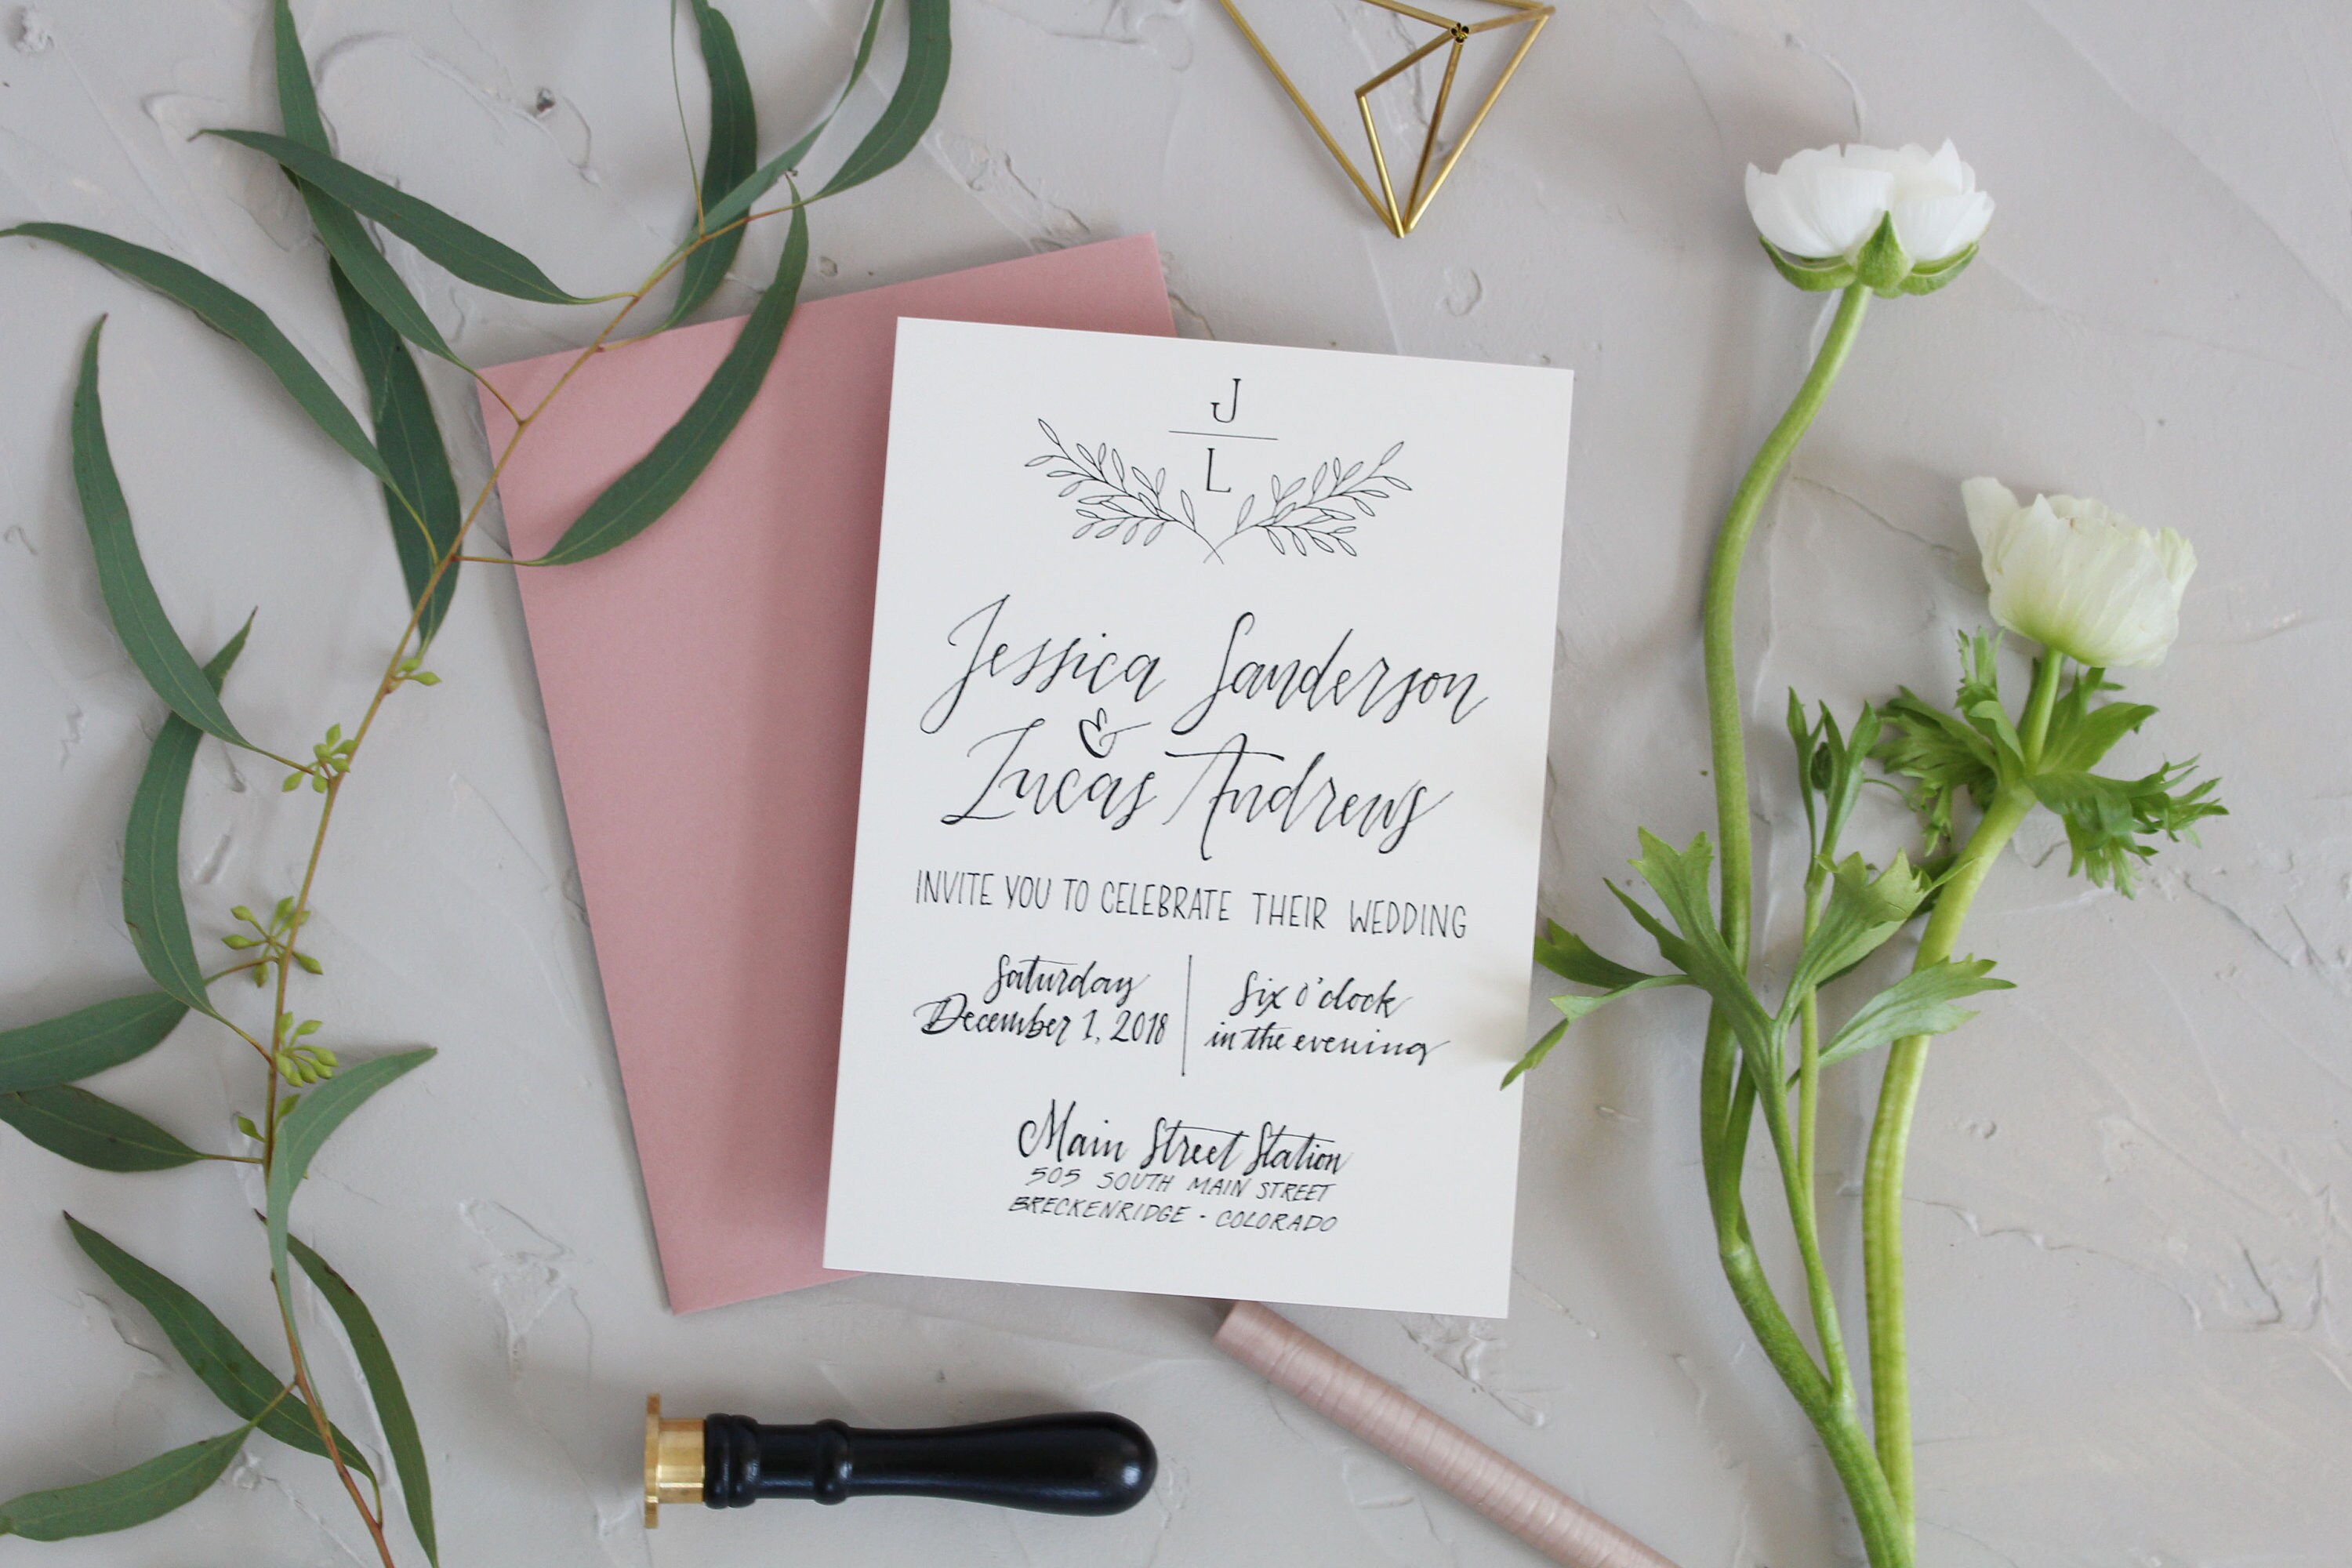 J
L
Jessica Sanderson
&
Lucas Andrews
INVITE YOU TO CELEBRATE THEIR WEDDING
Saturday
December 1, 2018
six o'clock
in the evening
Main Street Station
505 SOUTH MAIN STREET
BRECKENRIDGE · COLORADO